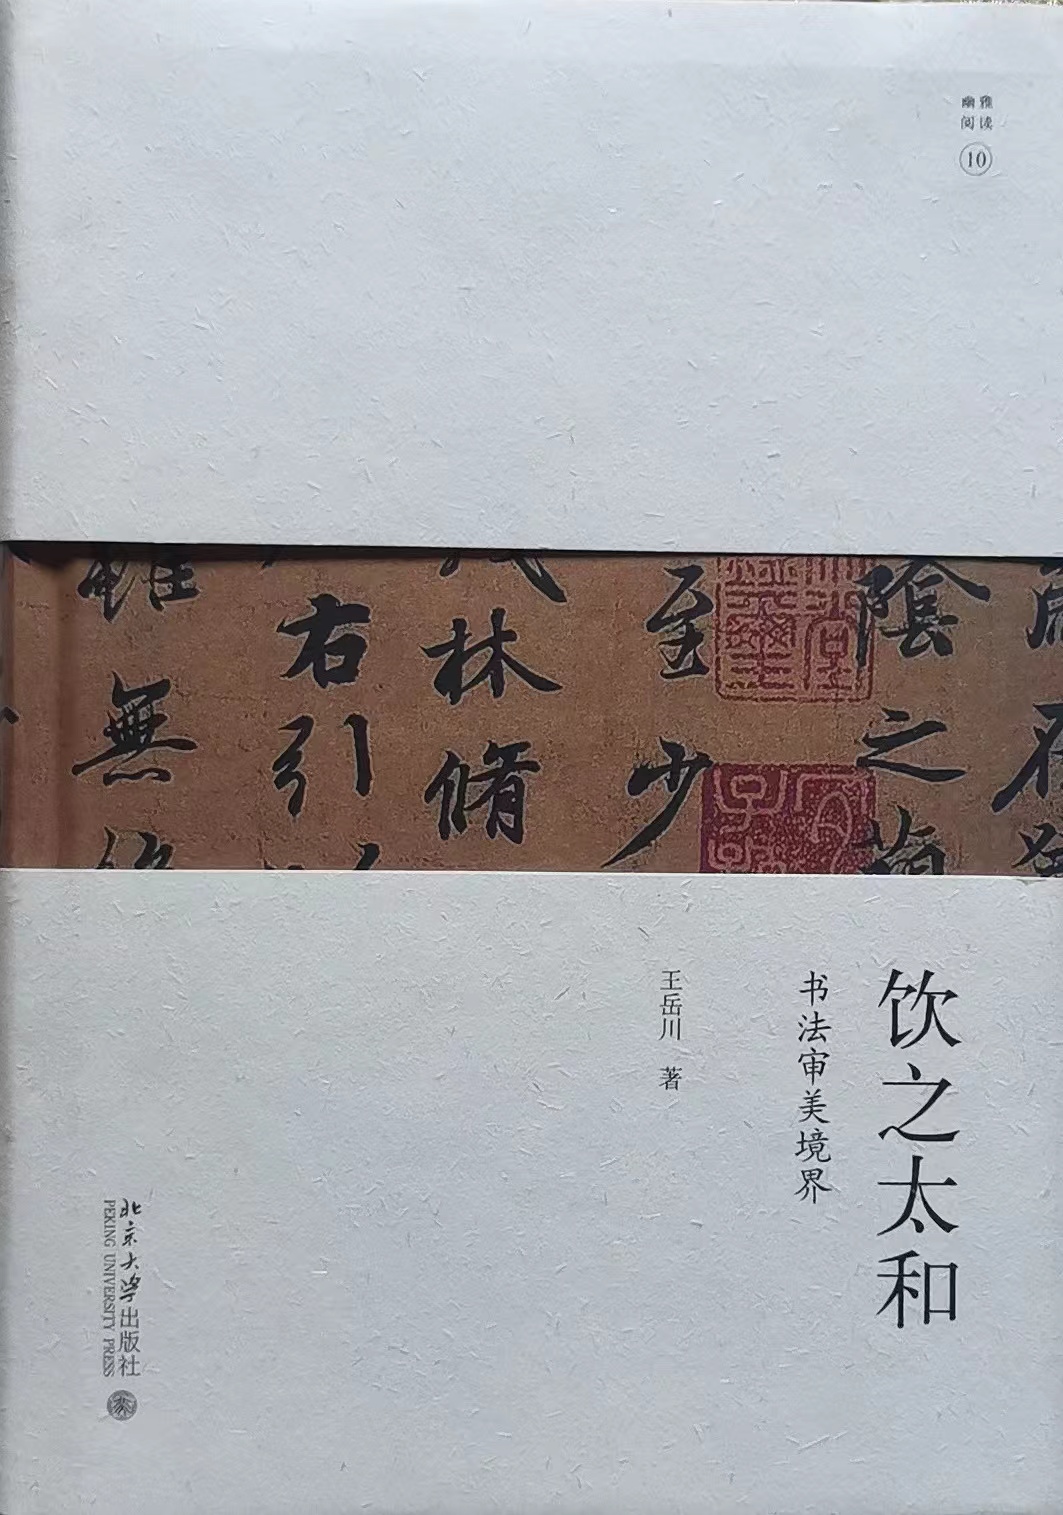 幽雅
阅读
10
陰之
至少
林脩
右引
無
饮之太和
书法审美境界
王岳川 著
北京大学出版社
PEKING UNIVERSITY PRESS